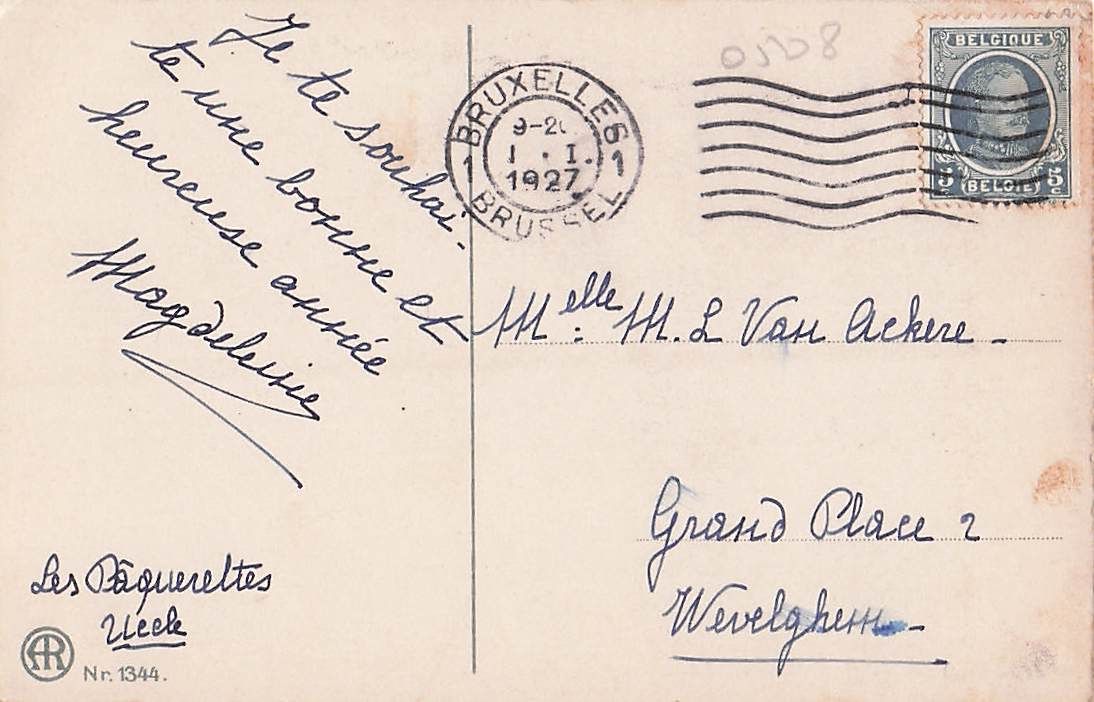 Je te souhai-
te une bonne et
heureuse année
Magdeleine
Les Pâquerettes
Uccle
AR
Nr. 1344.
BRUXELLES
1 1
9-20
1 . I.
1927
BRUSSEL
BELGIQUE
5 c 5 c
BELGIË
Melle: M. L Van Ackere -
Grand Place 2
Wevelghem -